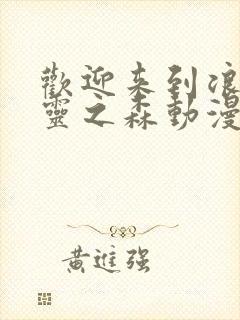 歡迎来到浪
靈之森動漫
黃進强